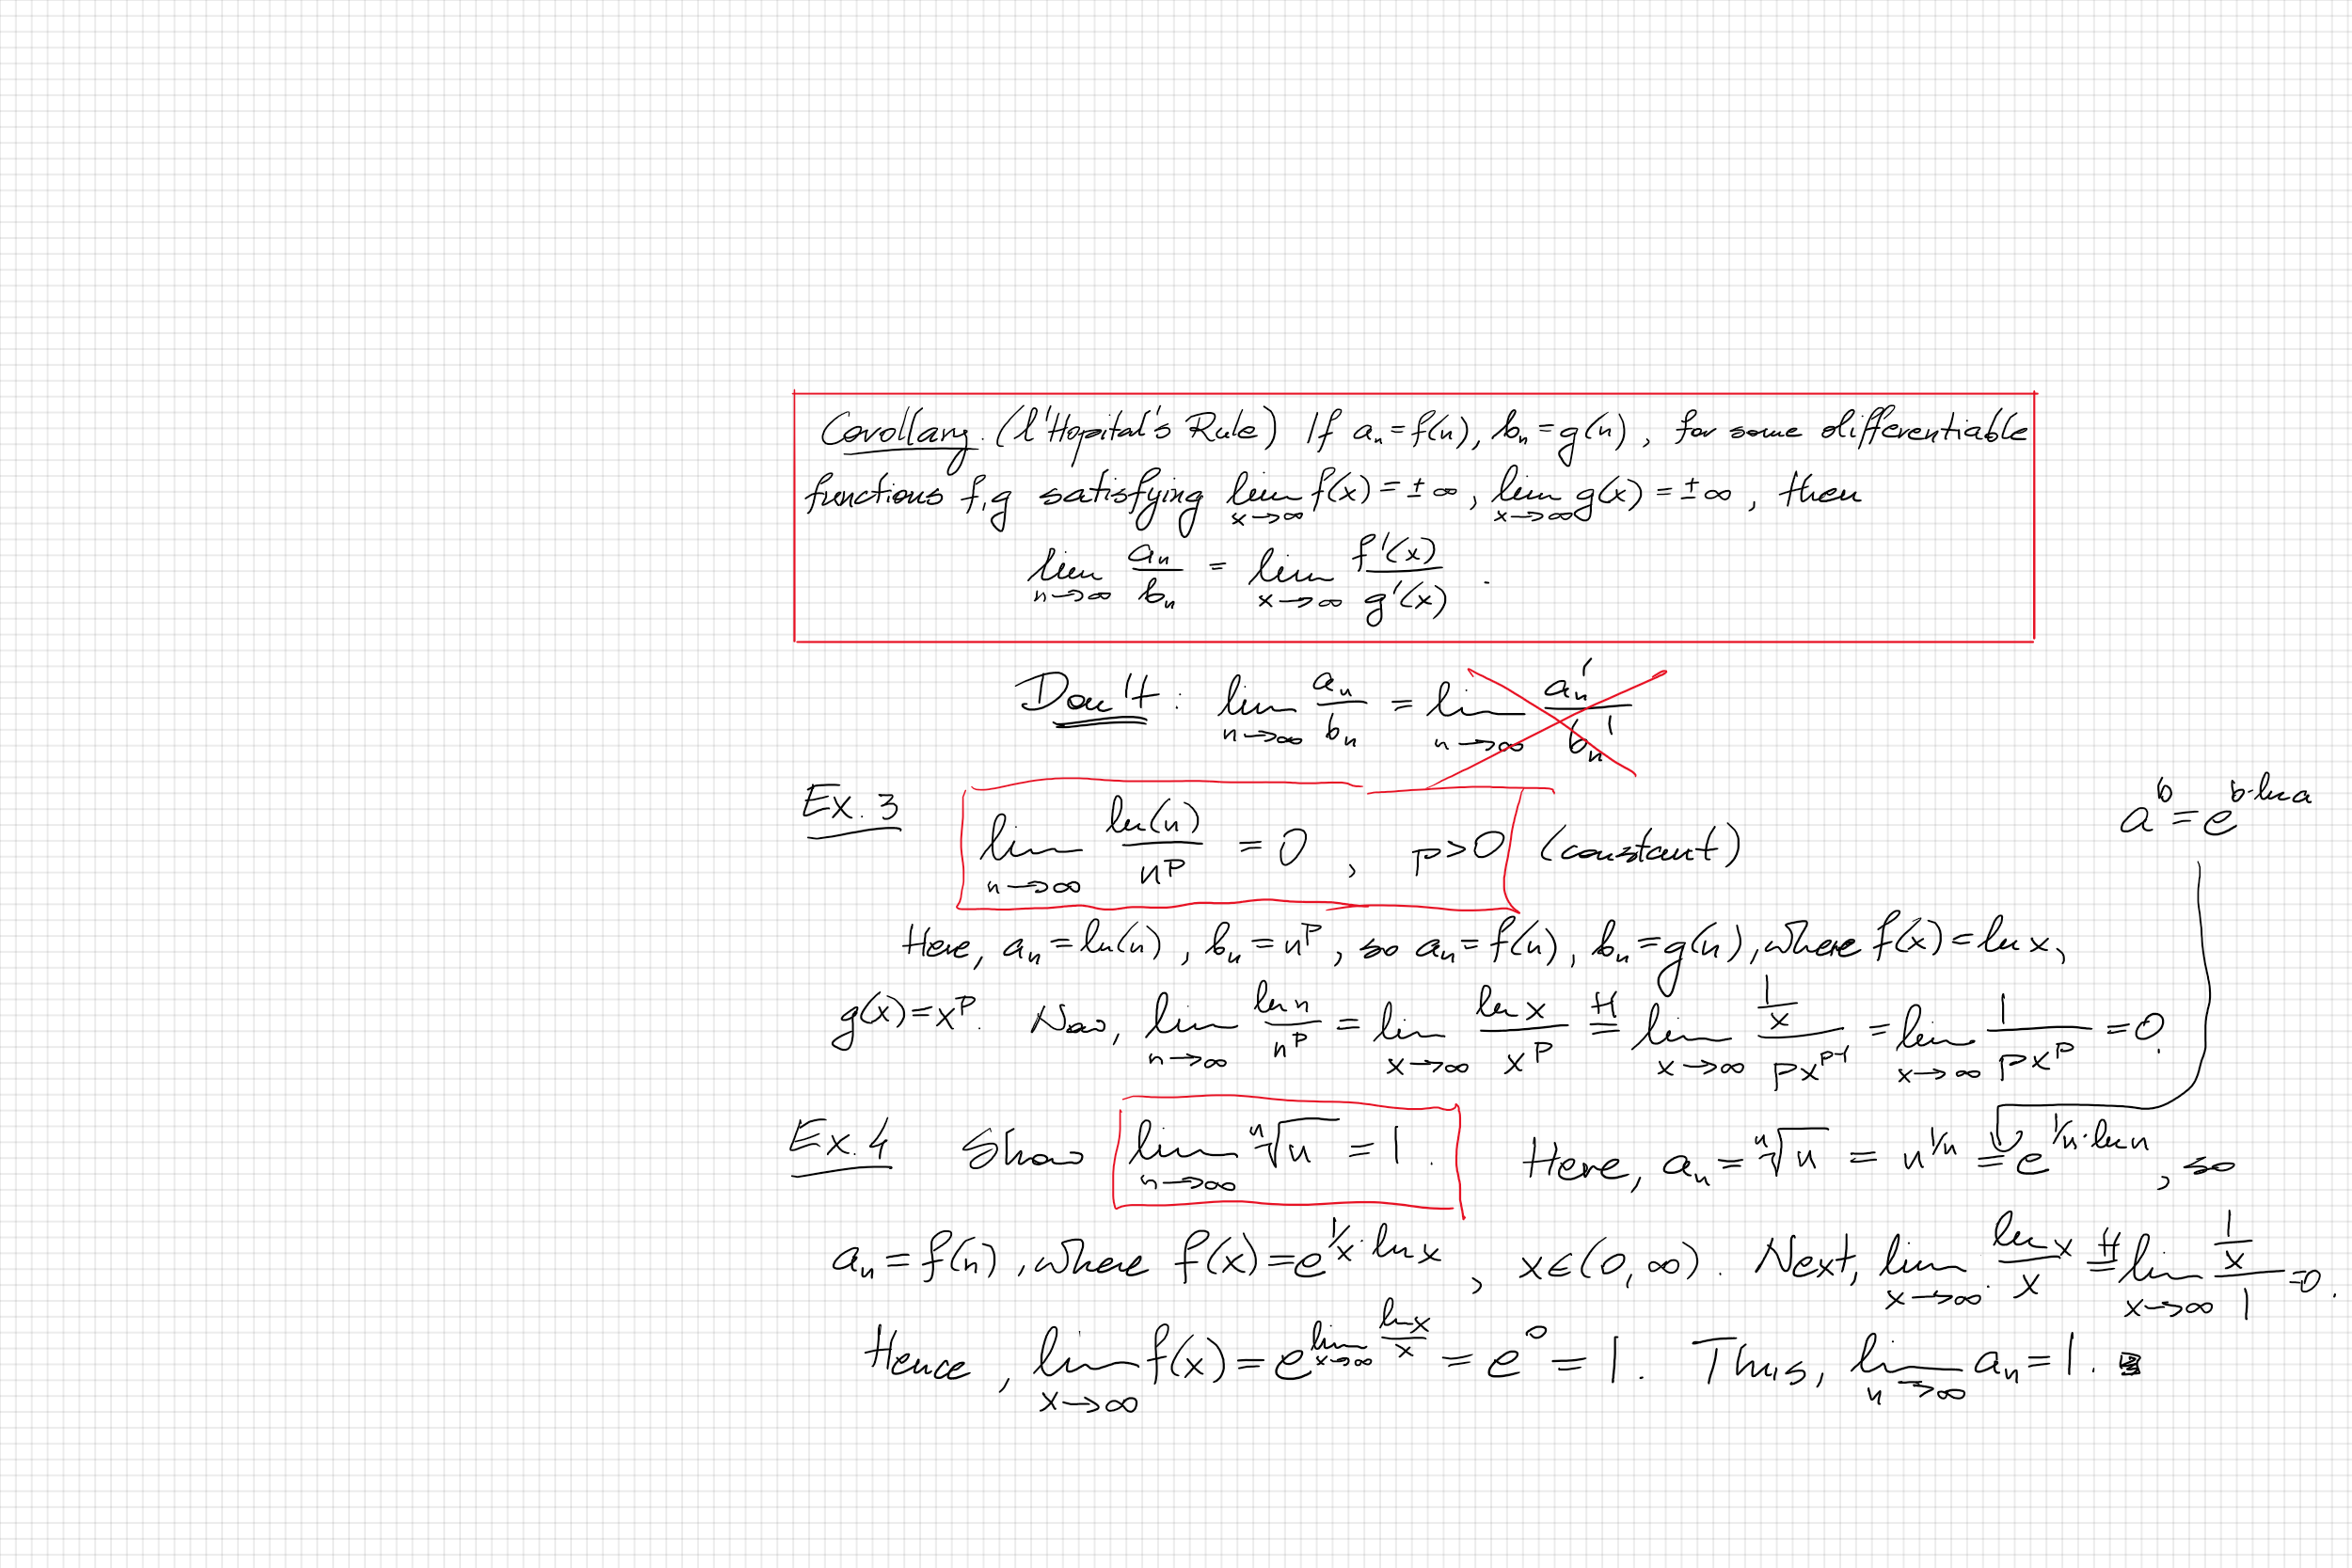 Corollary. (l'Hopital's Rule) If aₙ = f(n), bₙ = g(n), for some differentiable
functions f, g satisfying lim_{x→∞} f(x) = ±∞, lim_{x→∞} g(x) = ±∞, then
lim_{n→∞} aₙ/bₙ = lim_{x→∞} f'(x)/g'(x).
Don't: lim_{n→∞} aₙ/bₙ = lim_{n→∞} aₙ'/bₙ'
a^b = e^{b·ln a}
Ex. 3 lim_{n→∞} ln(n)/n^p = 0, p>0 (constant)
Here, aₙ = ln(n), bₙ = n^p, so aₙ = f(n), bₙ = g(n), where f(x) = ln x,
g(x) = x^p. Now, lim_{n→∞} ln n/n^p = lim_{x→∞} ln x/x^p =^H lim_{x→∞} (1/x)/(px^{p-1}) = lim_{x→∞} 1/(px^p) = 0.
Ex. 4 Show lim_{n→∞} ⁿ√n = 1. Here, aₙ = ⁿ√n = n^{1/n} = e^{1/n·ln n}, so
aₙ = f(n), where f(x) = e^{1/x·ln x}, x∈(0,∞). Next, lim_{x→∞} ln x/x =^H lim_{x→∞} (1/x)/1 = 0.
Hence, lim_{x→∞} f(x) = e^{lim_{x→∞} ln x/x} = e^0 = 1. Thus, lim_{n→∞} aₙ = 1.